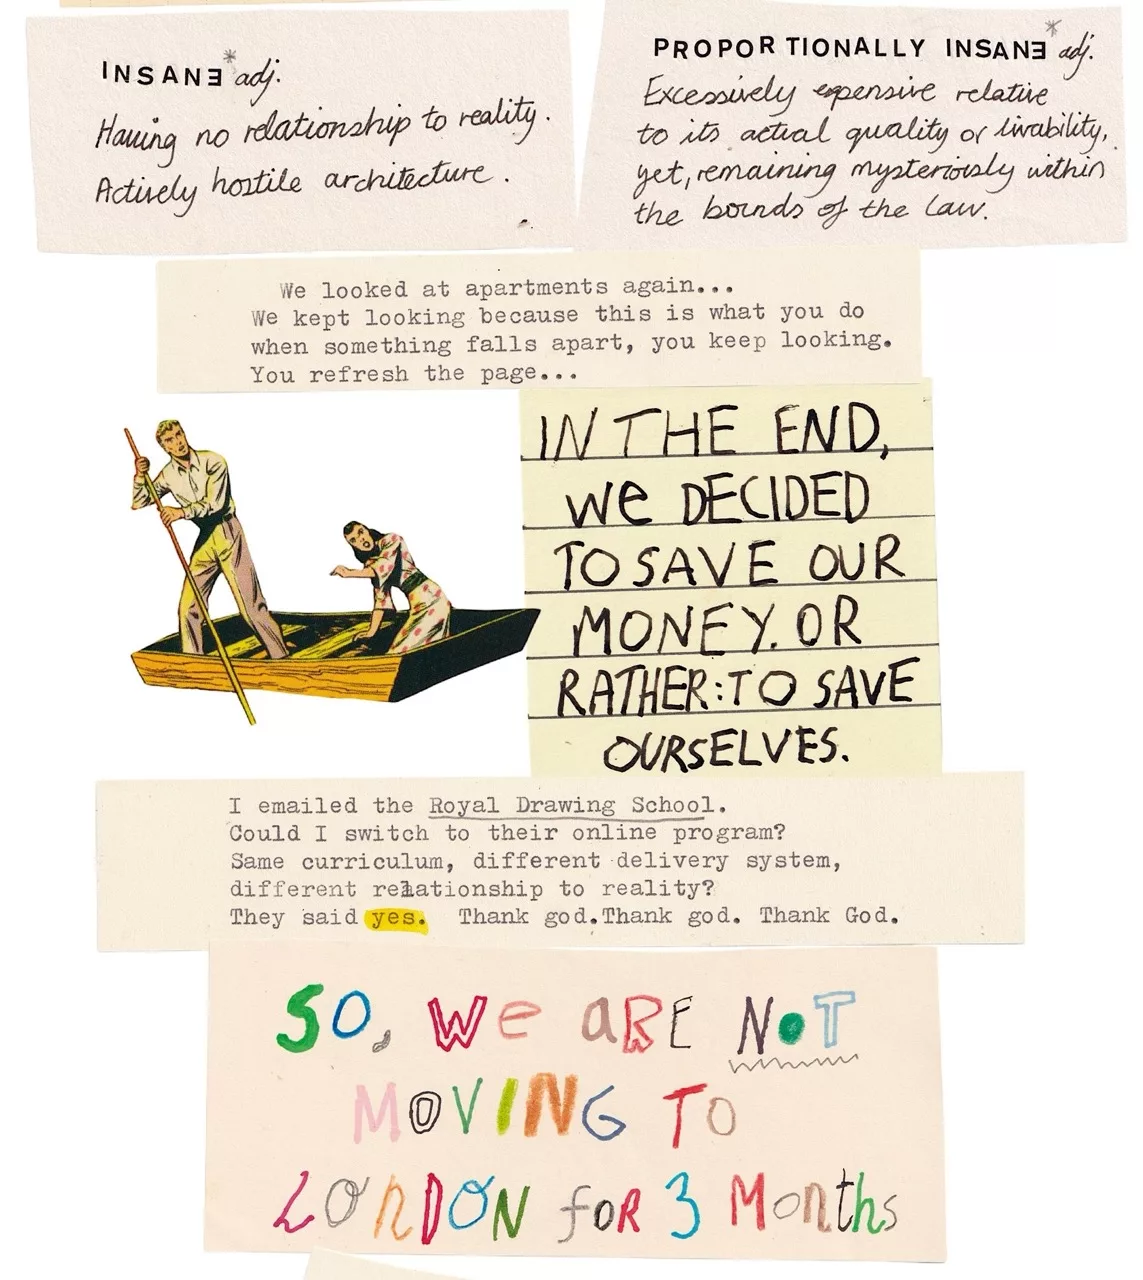 INSANE* adj.
Having no relationship to reality.
Actively hostile architecture.
PROPORTIONALLY INSANE* adj.
Excessively expensive relative
to its actual quality or livability,
yet, remaining mysteriously within
the bounds of the law.
We looked at apartments again...
We kept looking because this is what you do
when something falls apart, you keep looking.
You refresh the page...
IN THE END,
we DECIDED
TO SAVE OUR
MONEY. OR
RATHER: TO SAVE
OURSELVES.
I emailed the Royal Drawing School.
Could I switch to their online program?
Same curriculum, different delivery system,
different relationship to reality?
They said yes. Thank god.Thank god. Thank God.
SO, We aRE NOT
MOVING TO
LOnDON foR 3 Months